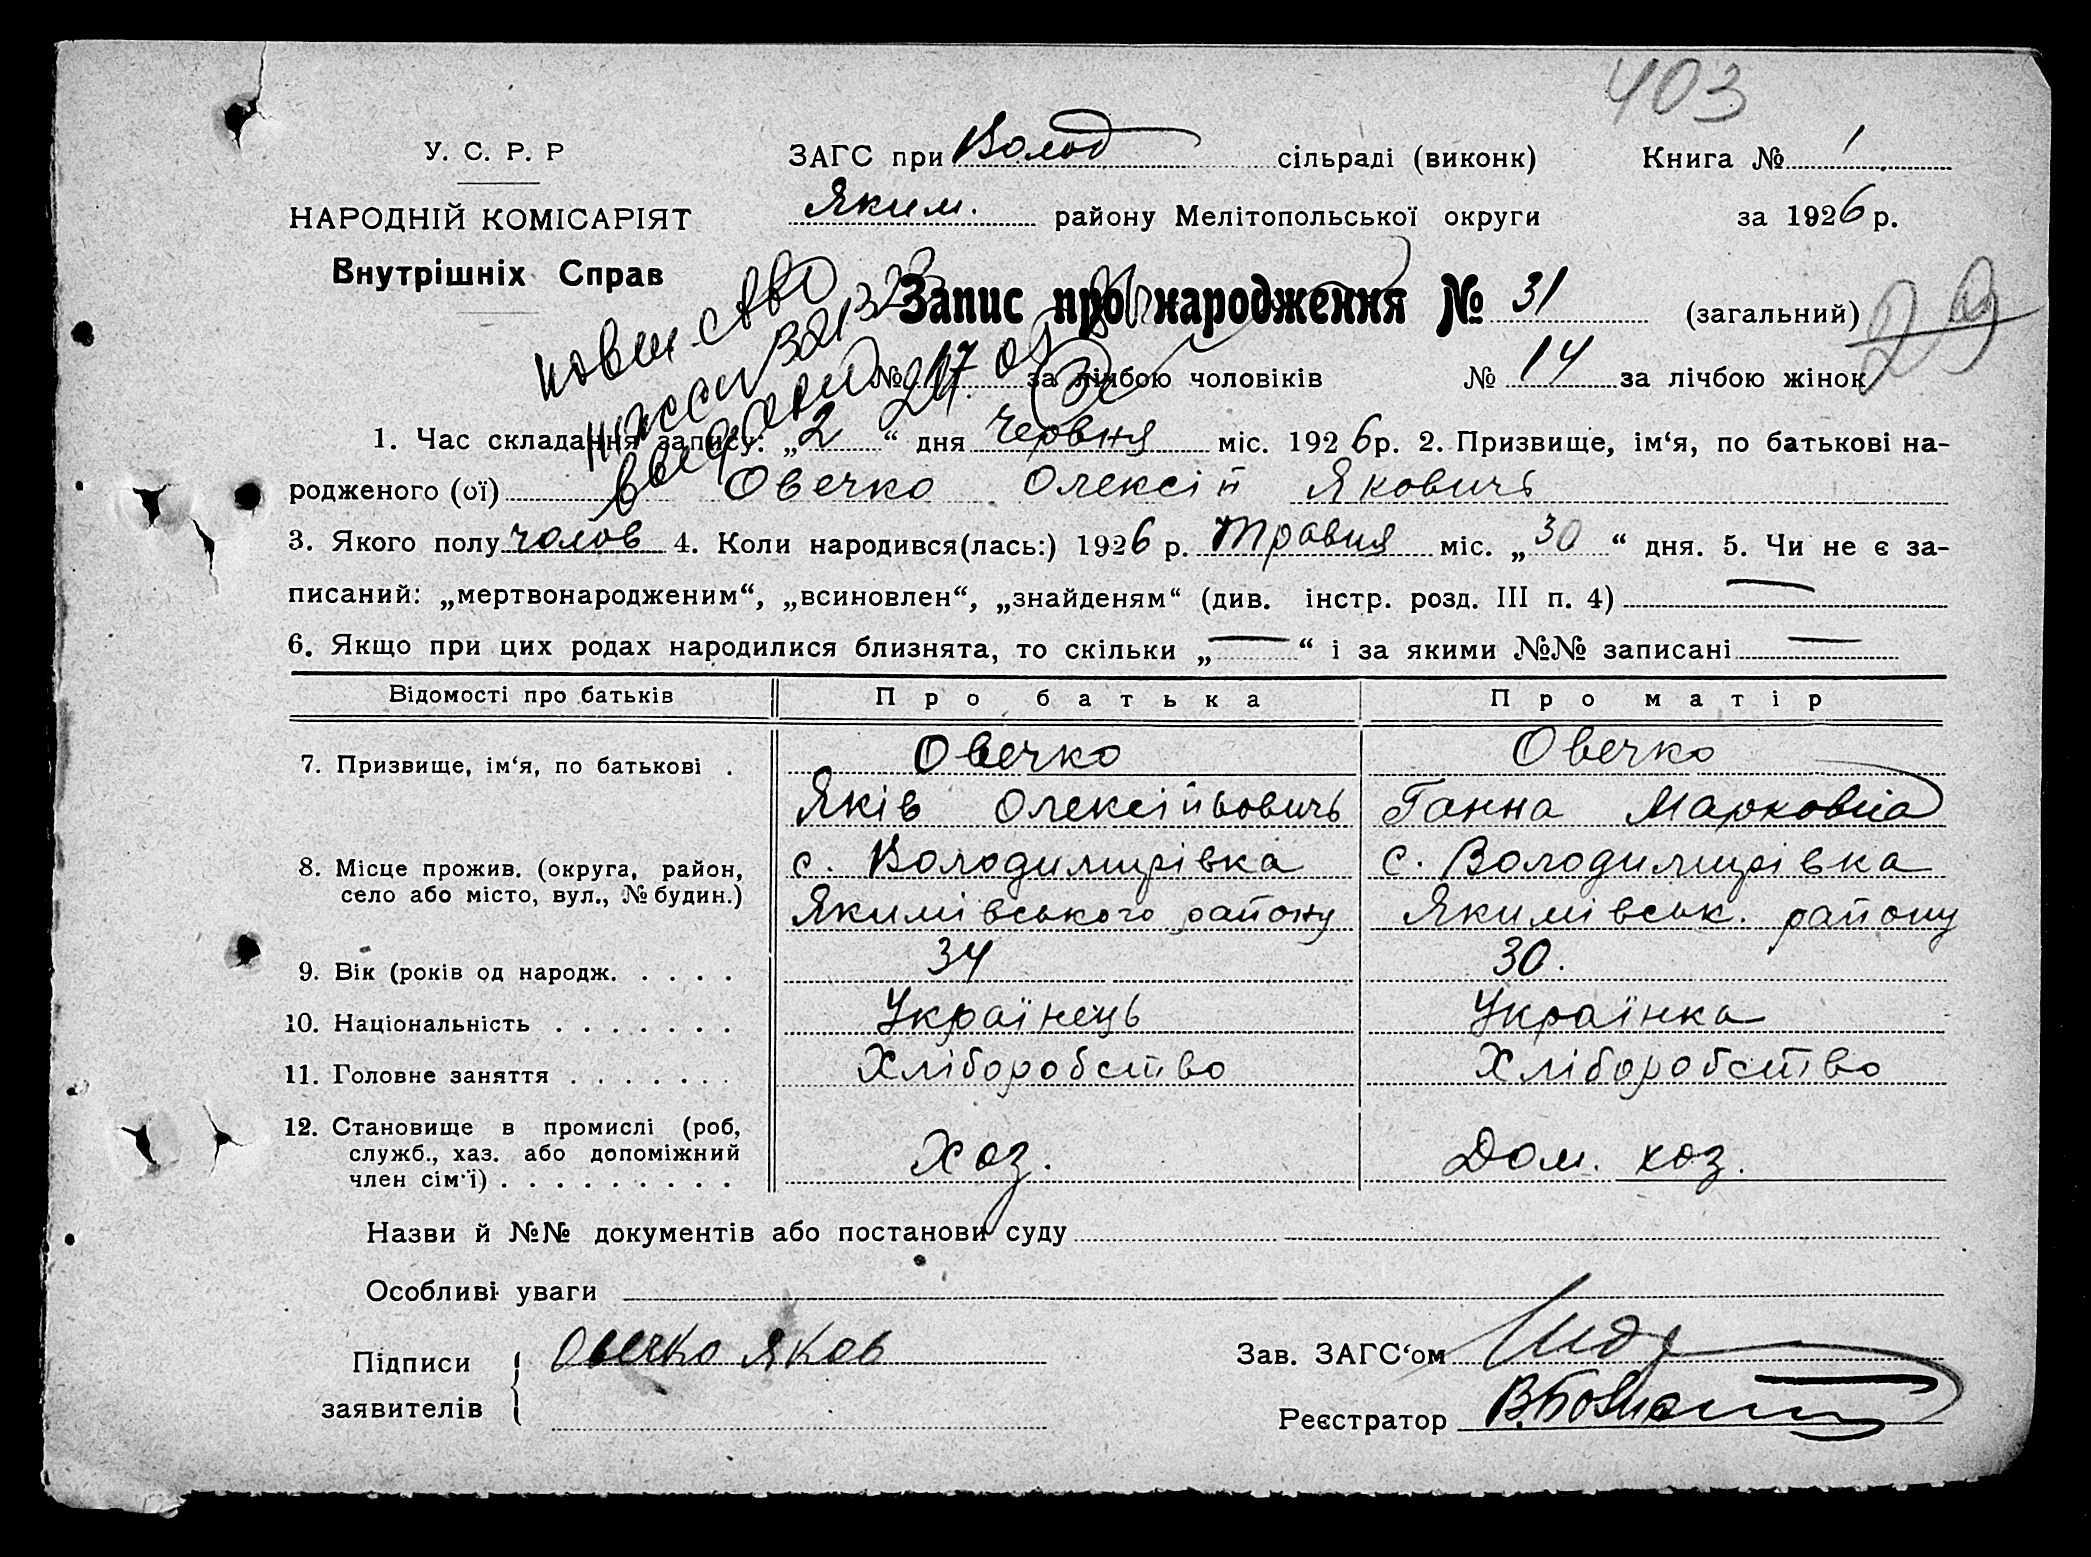 403
У. С. Р. Р
ЗАГС при Волод сільраді (виконк) Книга № 1
НАРОДНІЙ КОМІСАРІЯТ
Яким. району Мелітопольської округи за 1926 р.
Внутрішніх Справ
Запис про народження № 31 (загальний)
№ 17 за лічбою чоловіків № 14 за лічбою жінок
1. Час складання запису: „2“ дня Червня міс. 1926 р. 2. Призвище, ім‘я, по батькові на-
родженого (ої) Овечко Олексій Яковичь
3. Якого полу чолов 4. Коли народився(лась:) 1926 р. Травня міс. „30“ дня. 5. Чи не є за-
писаний: „мертвонародженим“, „всиновлен“, „знайденям“ (див. інстр. розд. III п. 4) —
6. Якщо при цих родах народилися близнята, то скільки „—“ і за якими №№ записані —
Відомості про батьків Про батька Про матір
7. Призвище, ім‘я, по батькові . Овечко Овечко
Яків Олексійовичь Ганна Марковна
8. Місце прожив. (округа, район, с. Володимирівка с. Володимирівка
село або місто, вул., № будин.) Якимівського району Якимівськ. району
9. Вік (років од народж. . . . . 34 30.
10. Національність . . . . . . . Українець Українка
11. Головне заняття . . . . . . . Хліборобство Хліборобство
12. Становище в промислі (роб,
служб., хаз. або допоміжний Хоз. Дом. хоз.
член сім‘ї) . . . . . . . . .
Назви й №№ документів або постанови суду
Особливі уваги
Підписи Овечко Яков Зав. ЗАГС‘ом
заявителів Реєстратор